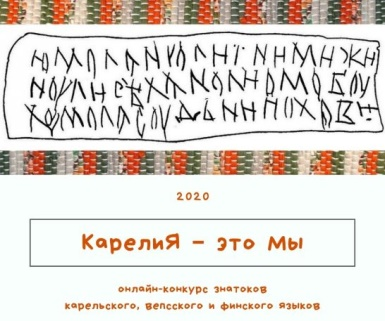 ЮМОЛАНУОЛИЇНИМИЖИ
НОУЛИСѢХАНОЛИОМОБОУ
ЮМОЛАСОУДЬНИИОХОВИ
2020
КарелиЯ – это Мы
онлайн-конкурс знатоков
карельского, вепсского и финского языков